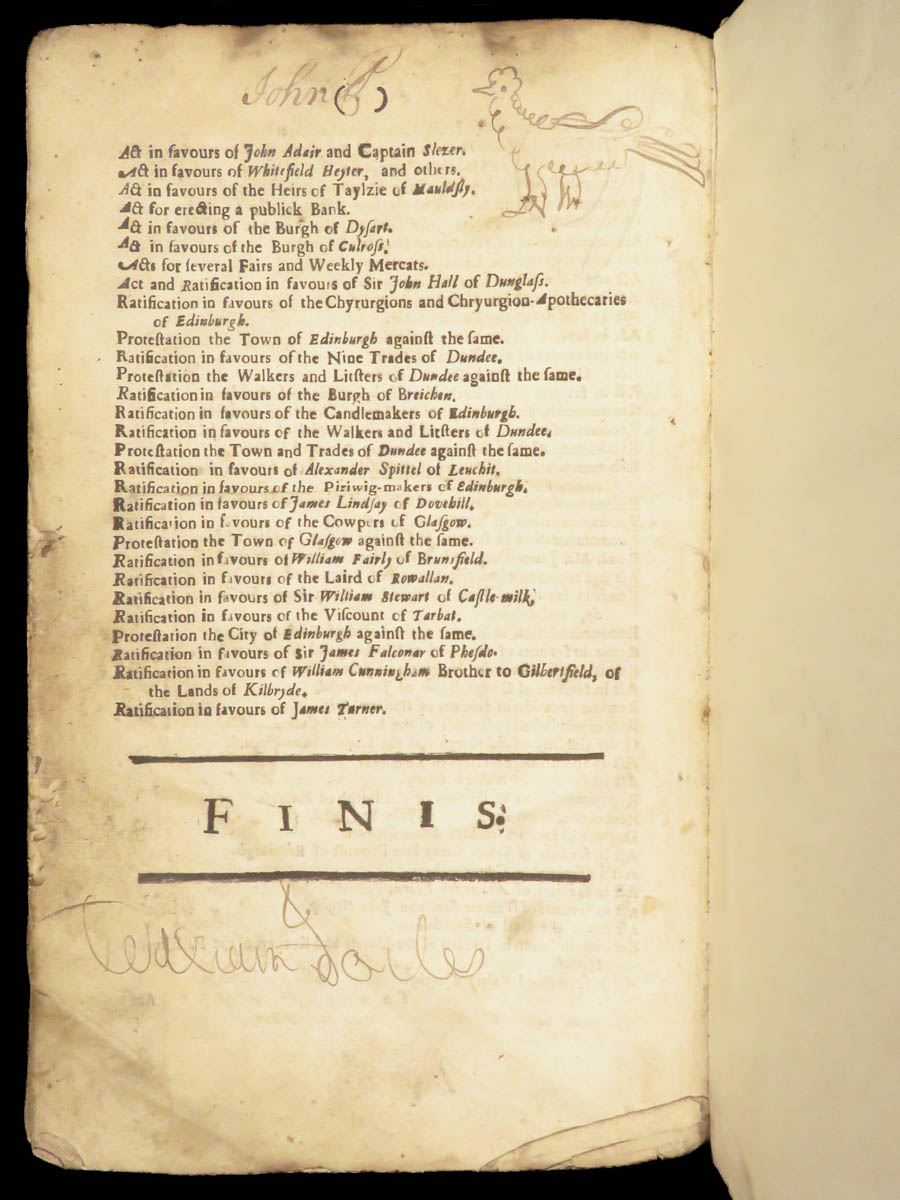 John P
( )
Act in favours of John Adair and Captain Slezer.
Act in favours of Whitefield Heyter, and others.
Act in favours of the Heirs of Taylzie of Mauldſly.
Act for erecting a publick Bank.
Act in favours of the Burgh of Dyſart.
Act in favours of the Burgh of Culroſs.
Acts for ſeveral Fairs and Weekly Mercats.
Act and Ratification in favours of Sir John Hall of Dunglaſs.
Ratification in favours of the Chyrurgions and Chryurgion-Apothecaries
of Edinburgh.
Proteſtation the Town of Edinburgh againſt the ſame.
Ratification in favours of the Nine Trades of Dundee.
Proteſtation the Walkers and Litſters of Dundee againſt the ſame.
Ratification in favours of the Burgh of Breichen.
Ratification in favours of the Candlemakers of Edinburgh.
Ratification in favours of the Walkers and Litſters of Dundee.
Proteſtation the Town and Trades of Dundee againſt the ſame.
Ratification in favours of Alexander Spittel of Leuchit.
Ratification in favours of the Piriwig-makers of Edinburgh.
Ratification in favours of James Lindſay of Dovehill.
Ratification in favours of the Cowpers of Glaſgow.
Proteſtation the Town of Glaſgow againſt the ſame.
Ratification in favours of William Fairly of Brunsfield.
Ratification in favours of the Laird of Rowallan.
Ratification in favours of Sir William Stewart of Caſtle-milk.
Ratification in favours of the Viſcount of Tarbat.
Proteſtation the City of Edinburgh againſt the ſame.
Ratification in favours of Sir James Falconar of Pheſdo.
Ratification in favours of William Cunningham Brother to Gilbertfield, of
the Lands of Kilbryde.
Ratification in favours of James Turner.
FINIS.
William